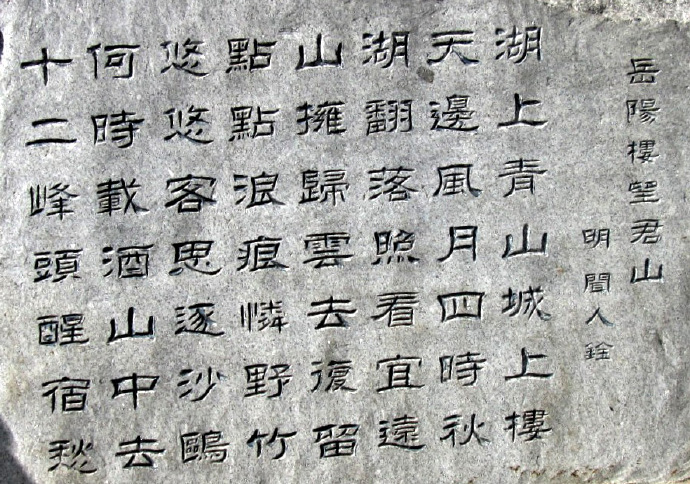 岳陽樓望君山
明聞人銓
湖上青山城上樓
天邊風月四時秋
湖翻落照看宜遠
山擁歸雲去復留
點點浪痕憐野竹
悠悠客思逐沙鷗
何時載酒山中去
十二峰頭醒宿愁